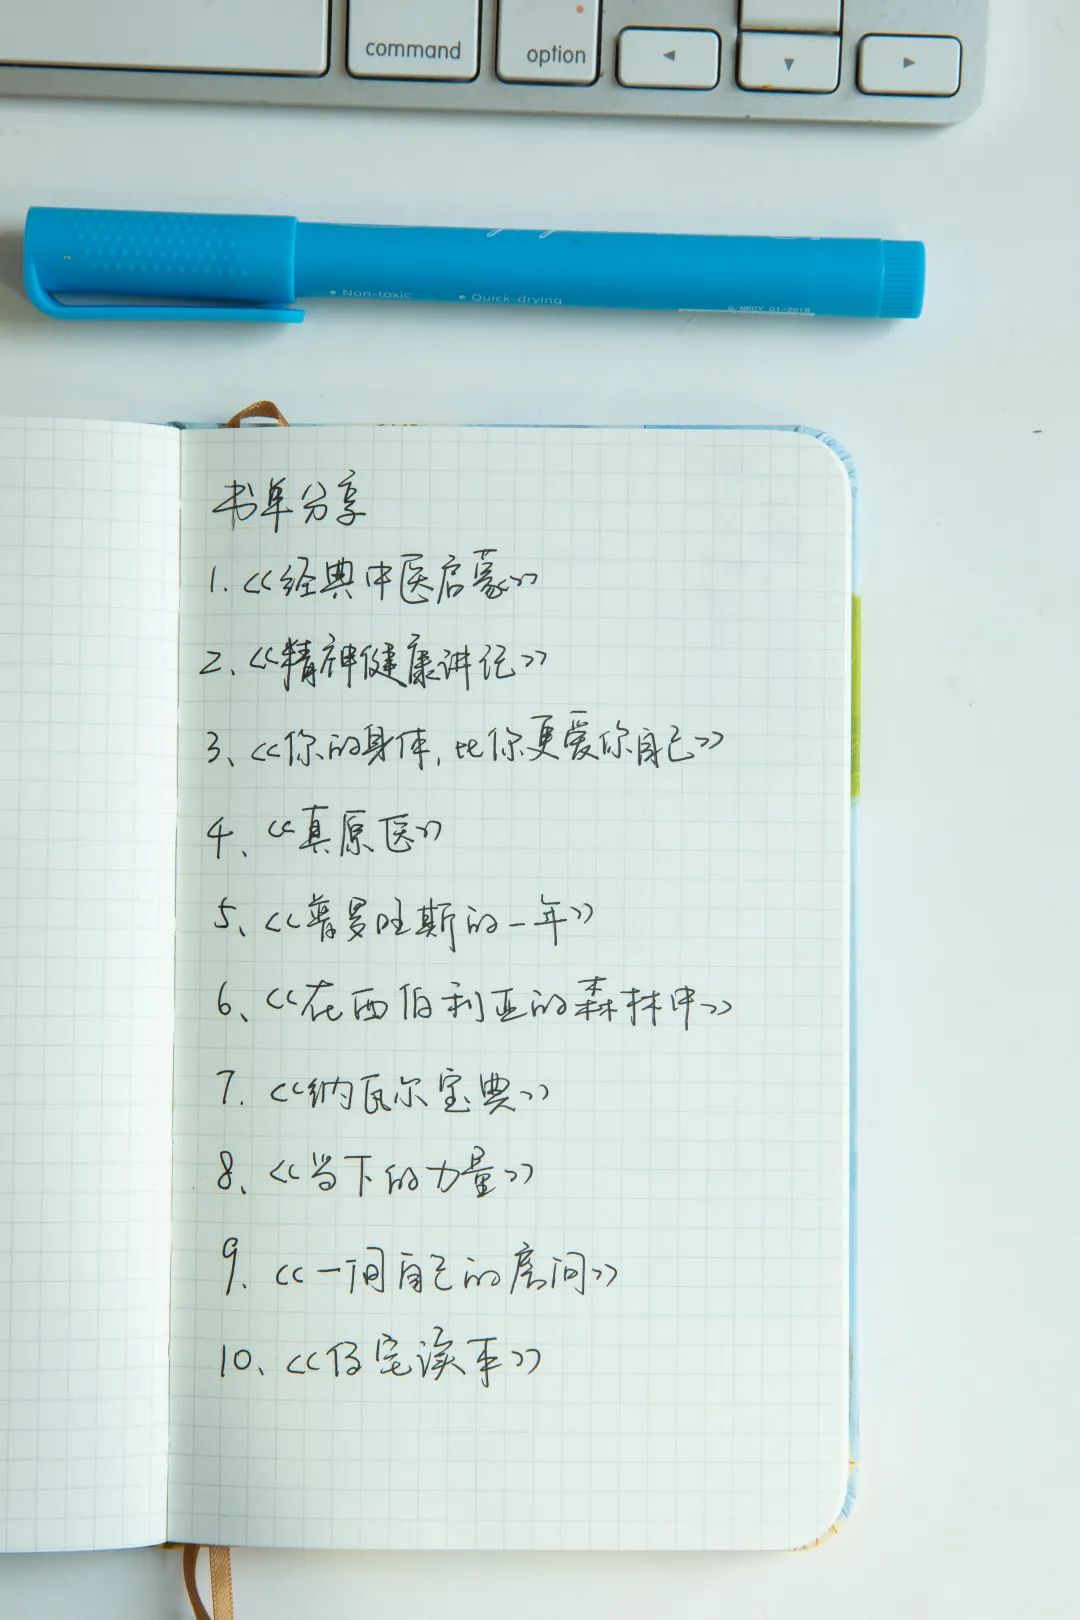 command
option
◄
▼
►
• Non-toxic • Quick-drying
书单分享
1.《经典中医启蒙》
2、《精神健康讲记》
3、《你的身体，比你更爱你自己》
4、《真原医》
5、《普罗旺斯的一年》
6、《在西伯利亚的森林中》
7.《纳瓦尔宝典》
8、《当下的力量》
9、《一间自己的房间》
10、《传宅读本》